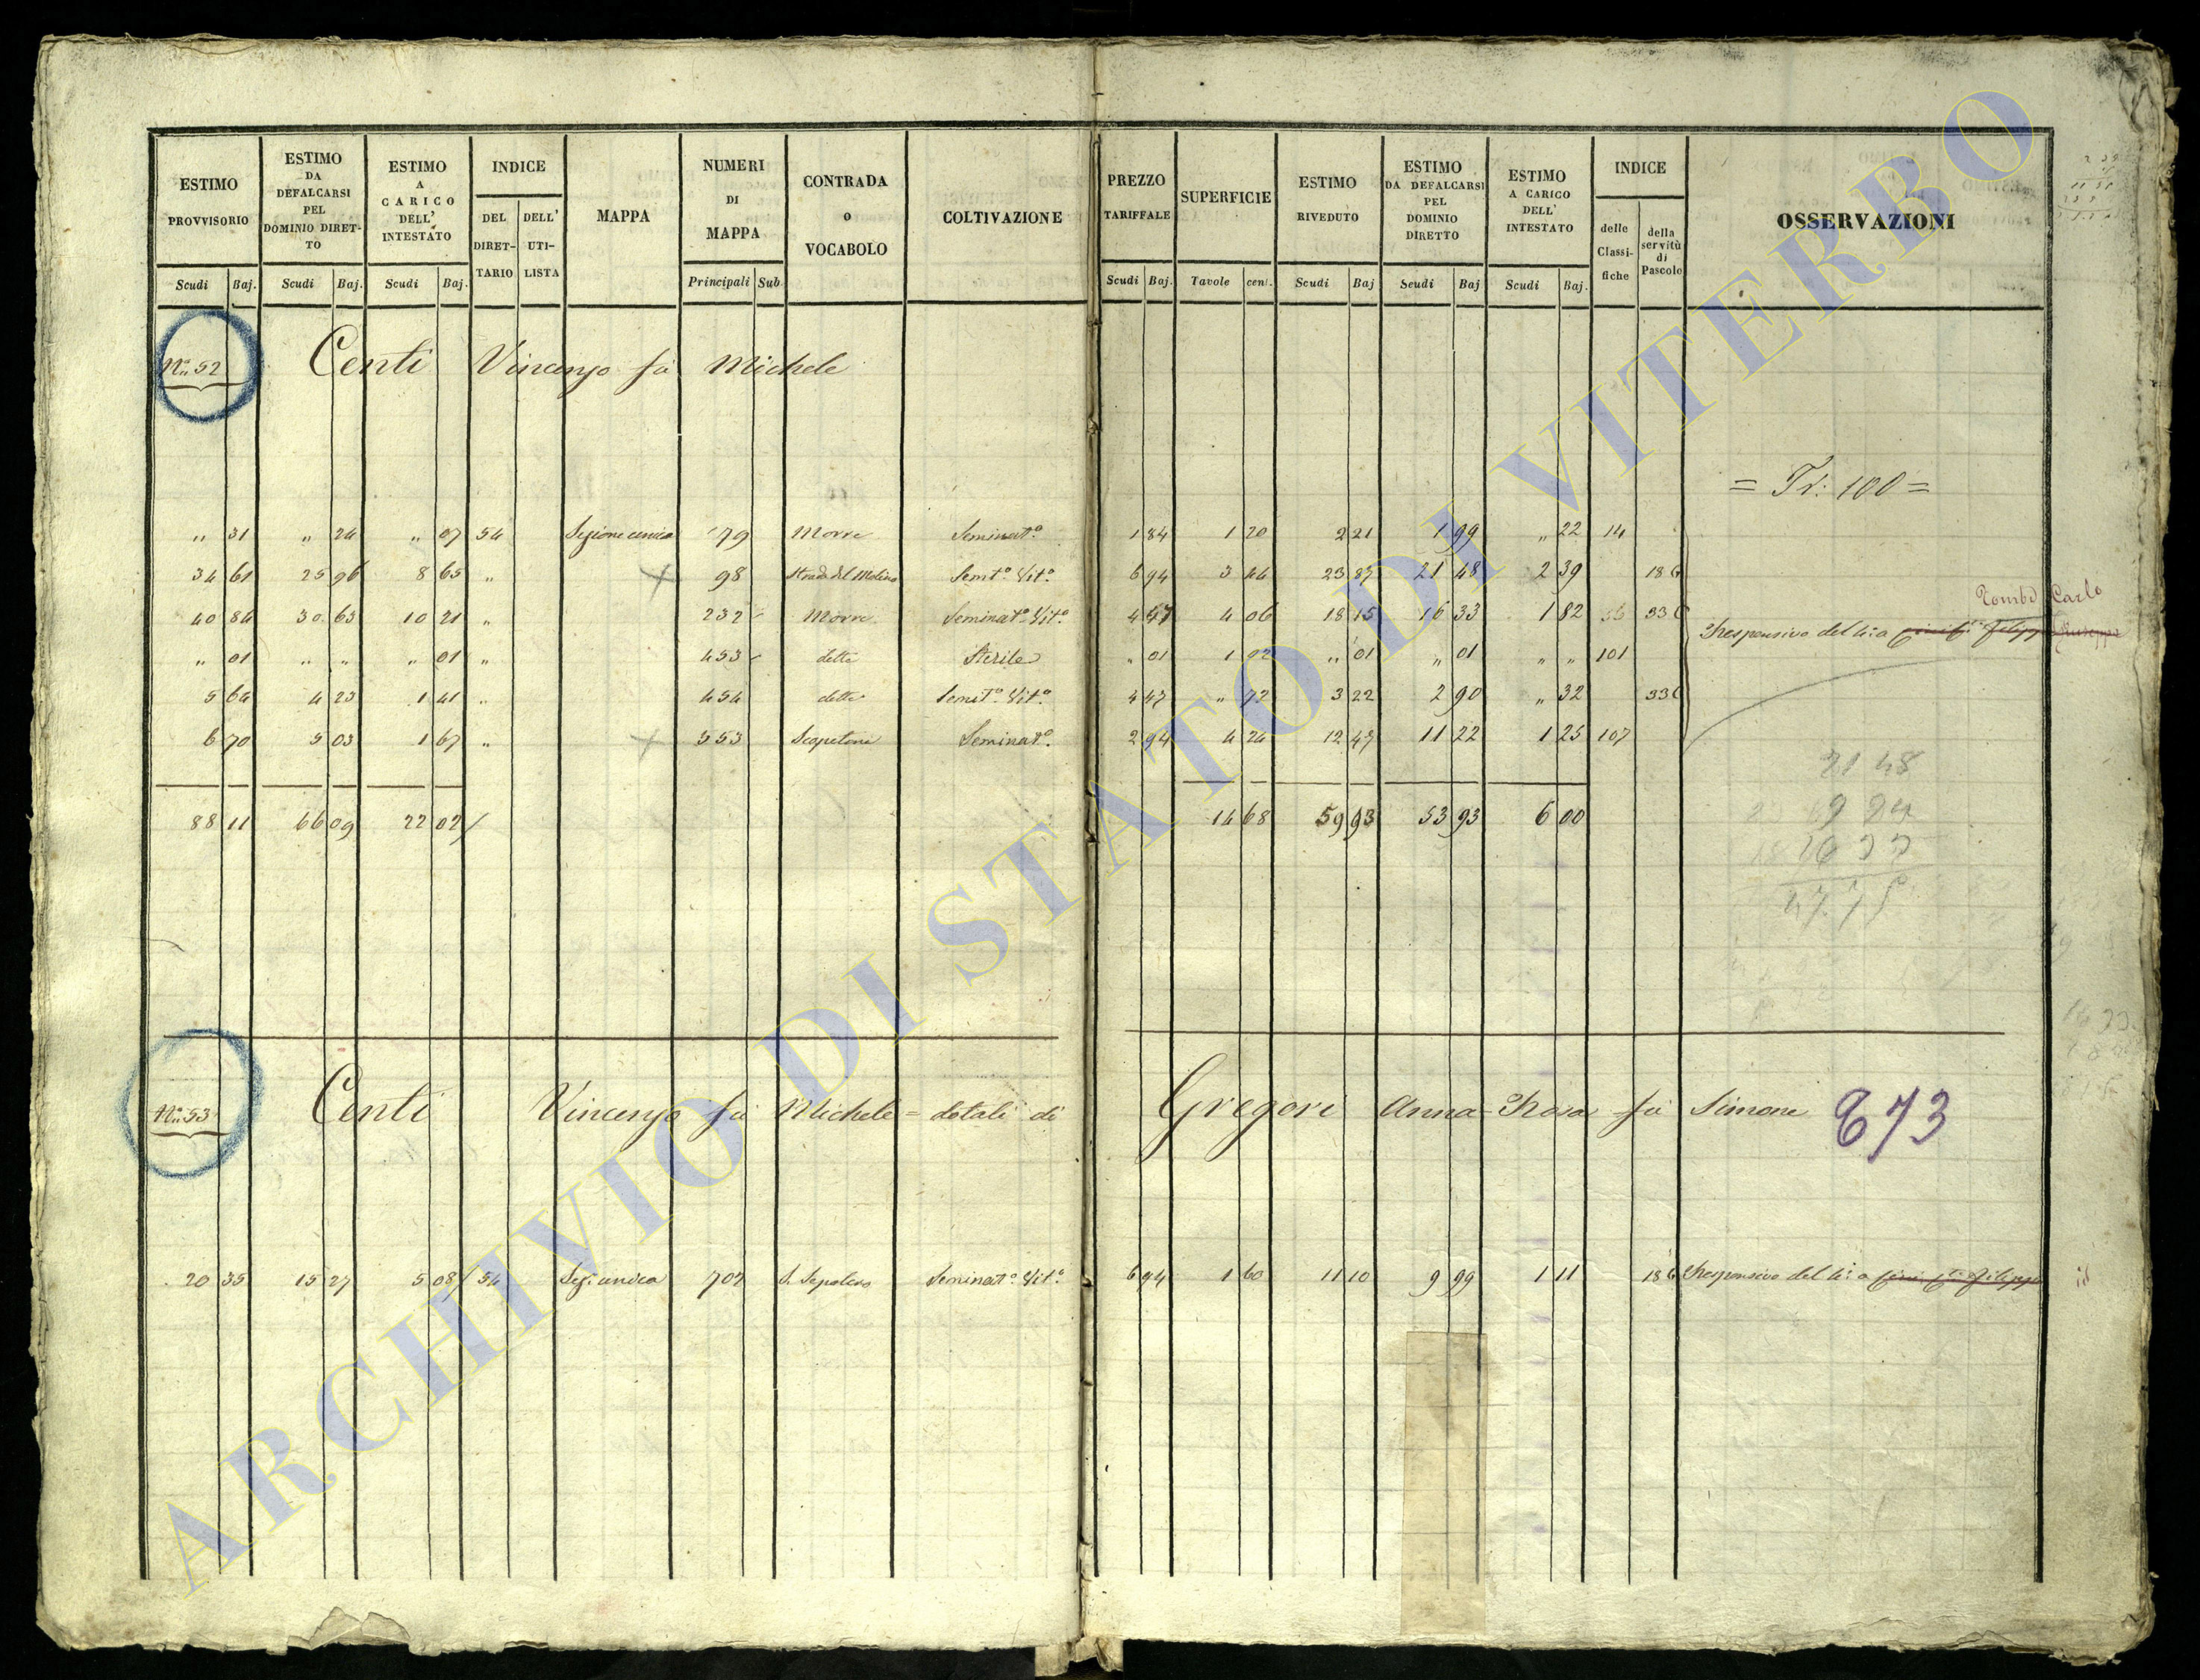 ESTIMO PROVVISORIO Scudi Baj.
ESTIMO DA DEFALCARSI PEL DOMINIO DIRET-TO Scudi Baj.
ESTIMO A CARICO DELL' INTESTATO Scudi Baj.
INDICE DEL DIRET-TARIO DELL' UTI-LISTA
MAPPA
NUMERI DI MAPPA Principali Sub
CONTRADA o VOCABOLO
COLTIVAZIONE
PREZZO TARIFFALE Scudi Baj.
SUPERFICIE Tavole cent.
ESTIMO RIVEDUTO Scudi Baj
ESTIMO DA DEFALCARSI PEL DOMINIO DIRETTO Scudi Baj
ESTIMO A CARICO DELL' INTESTATO Scudi Baj.
INDICE delle Classi-fiche della servitù di Pascolo
OSSERVAZIONI
N.° 52 Centi Vincenzo fù Michele
= Tr: 100 =
" 31 " 24 " 07 54 Sezione unica 79 Morre Seminat.° 1 84 1 20 2 21 1 99 " 22 14
34 61 25 96 8 65 " 98 Strada del Molino Semt.° Vit.° 6 94 3 44 23 87 21 48 2 39 186
40 84 30 63 10 21 " 232 Morre Seminat.° Vit.° 4 47 4 06 18 15 16 33 1 82 336
Carlo
Responsivo del 4.° a
" 01 " " " 01 " 453 dette Sterile " 01 1 02 " 01 " 01 " " 101
5 64 4 23 1 41 " 454 dette Semit.° Vit.° 4 47 " 72 3 22 2 90 " 32 336
6 70 5 03 1 67 " 353 Scapetone Seminat.° 2 94 4 24 12 47 11 22 1 25 107
88 11 66 09 22 02 14 68 59 93 53 93 6 00
21 48
9 24
16 33
47.75
N.° 53 Centi Vincenzo fù Michele = dotali di Gregori Anna Rosa fù Simone 673
20 35 15 27 5 08 54 Sez: unica 702 S. Sepolcro Seminat.° Vit.° 6 94 1 60 11 10 9 99 1 11 186 Responsivo del 4.° a
ARCHIVIO DI STATO DI VITERBO